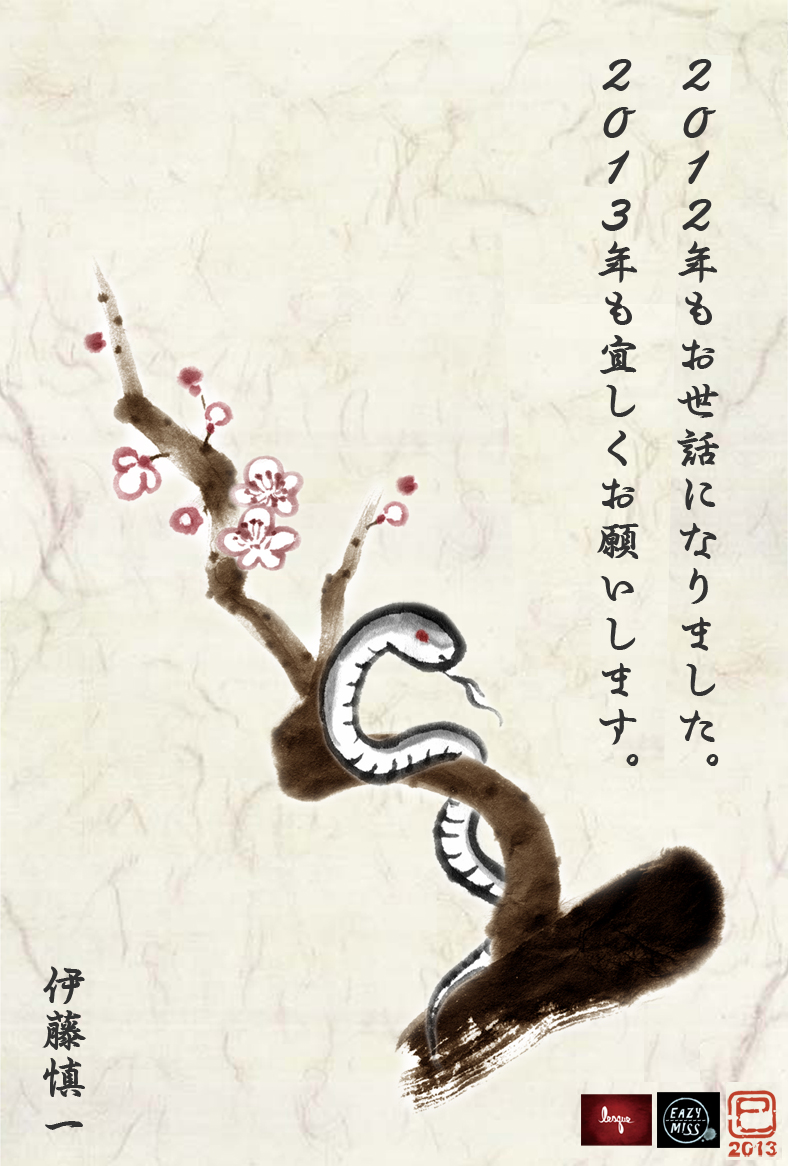 2012年もお世話になりました。
2013年も宜しくお願いします。
伊藤慎一
lesque
EAZY
MISS
巳
2013